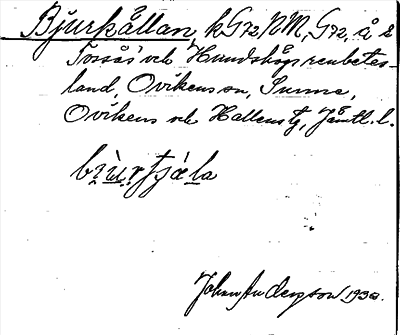 Bjurkällan, k G72 NM, G72, å
Tossås och Hundshögs renbetes-
land, Ovikens sn, Sunne,
Ovikens och Hallens tg, Jämtl. l.
John Anderson 1930.